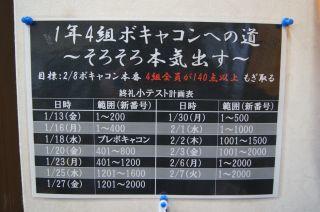 1年4組ボキャコンへの道
～そろそろ本気出す～
目標:2/8ボキャコン本番 4組全員が140点以上 もぎ取る
終礼小テスト計画表
日時 範囲(新番号) 日時 範囲(新番号)
1/13(金) 1～200 1/30(月) 1～500
1/16(月) 1～400 2/1(水) 1～1000
1/18(水) プレボキャコン 2/2(木) 1001～1500
1/20(金) 401～800 2/3(金) 1001～2000
1/23(月) 401～1200 2/6(月) 1～2000
1/25(水) 1201～1600 2/7(火) 1～2000
1/27(金) 1201～2000